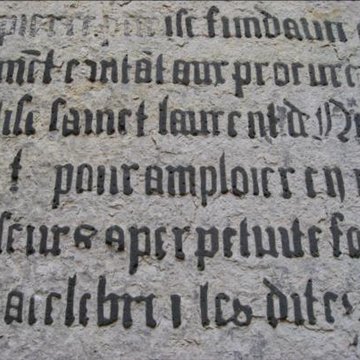 pierre par ise fundaur
ment cantāt aux procure
lise sainct laurent de
t pour amploier en
seurs a perpetuite fa
a celebrer les dites